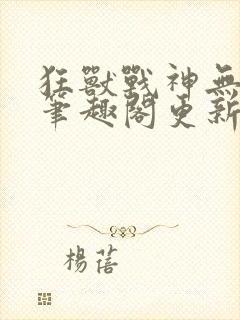 狂獸戰神無
筆趣閣更新
楊蓓